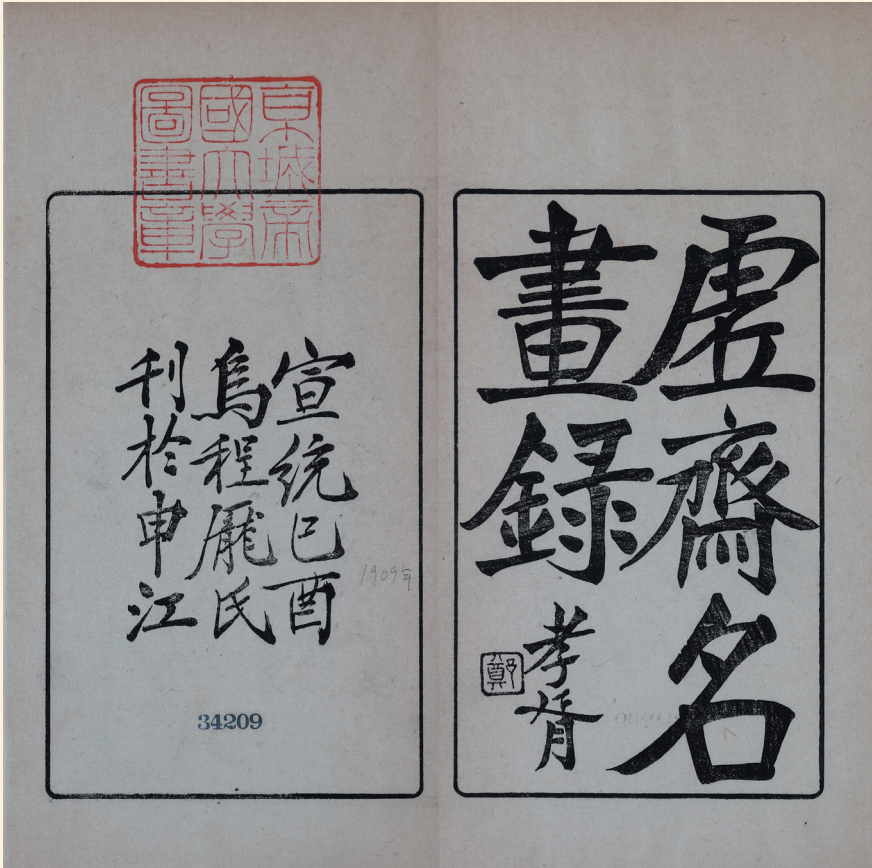 虛齋名
畫錄
孝胥
鄭
京城帝
國大學
圖書章
宣統己酉
烏程龐氏
刊於申江
1909年
34209